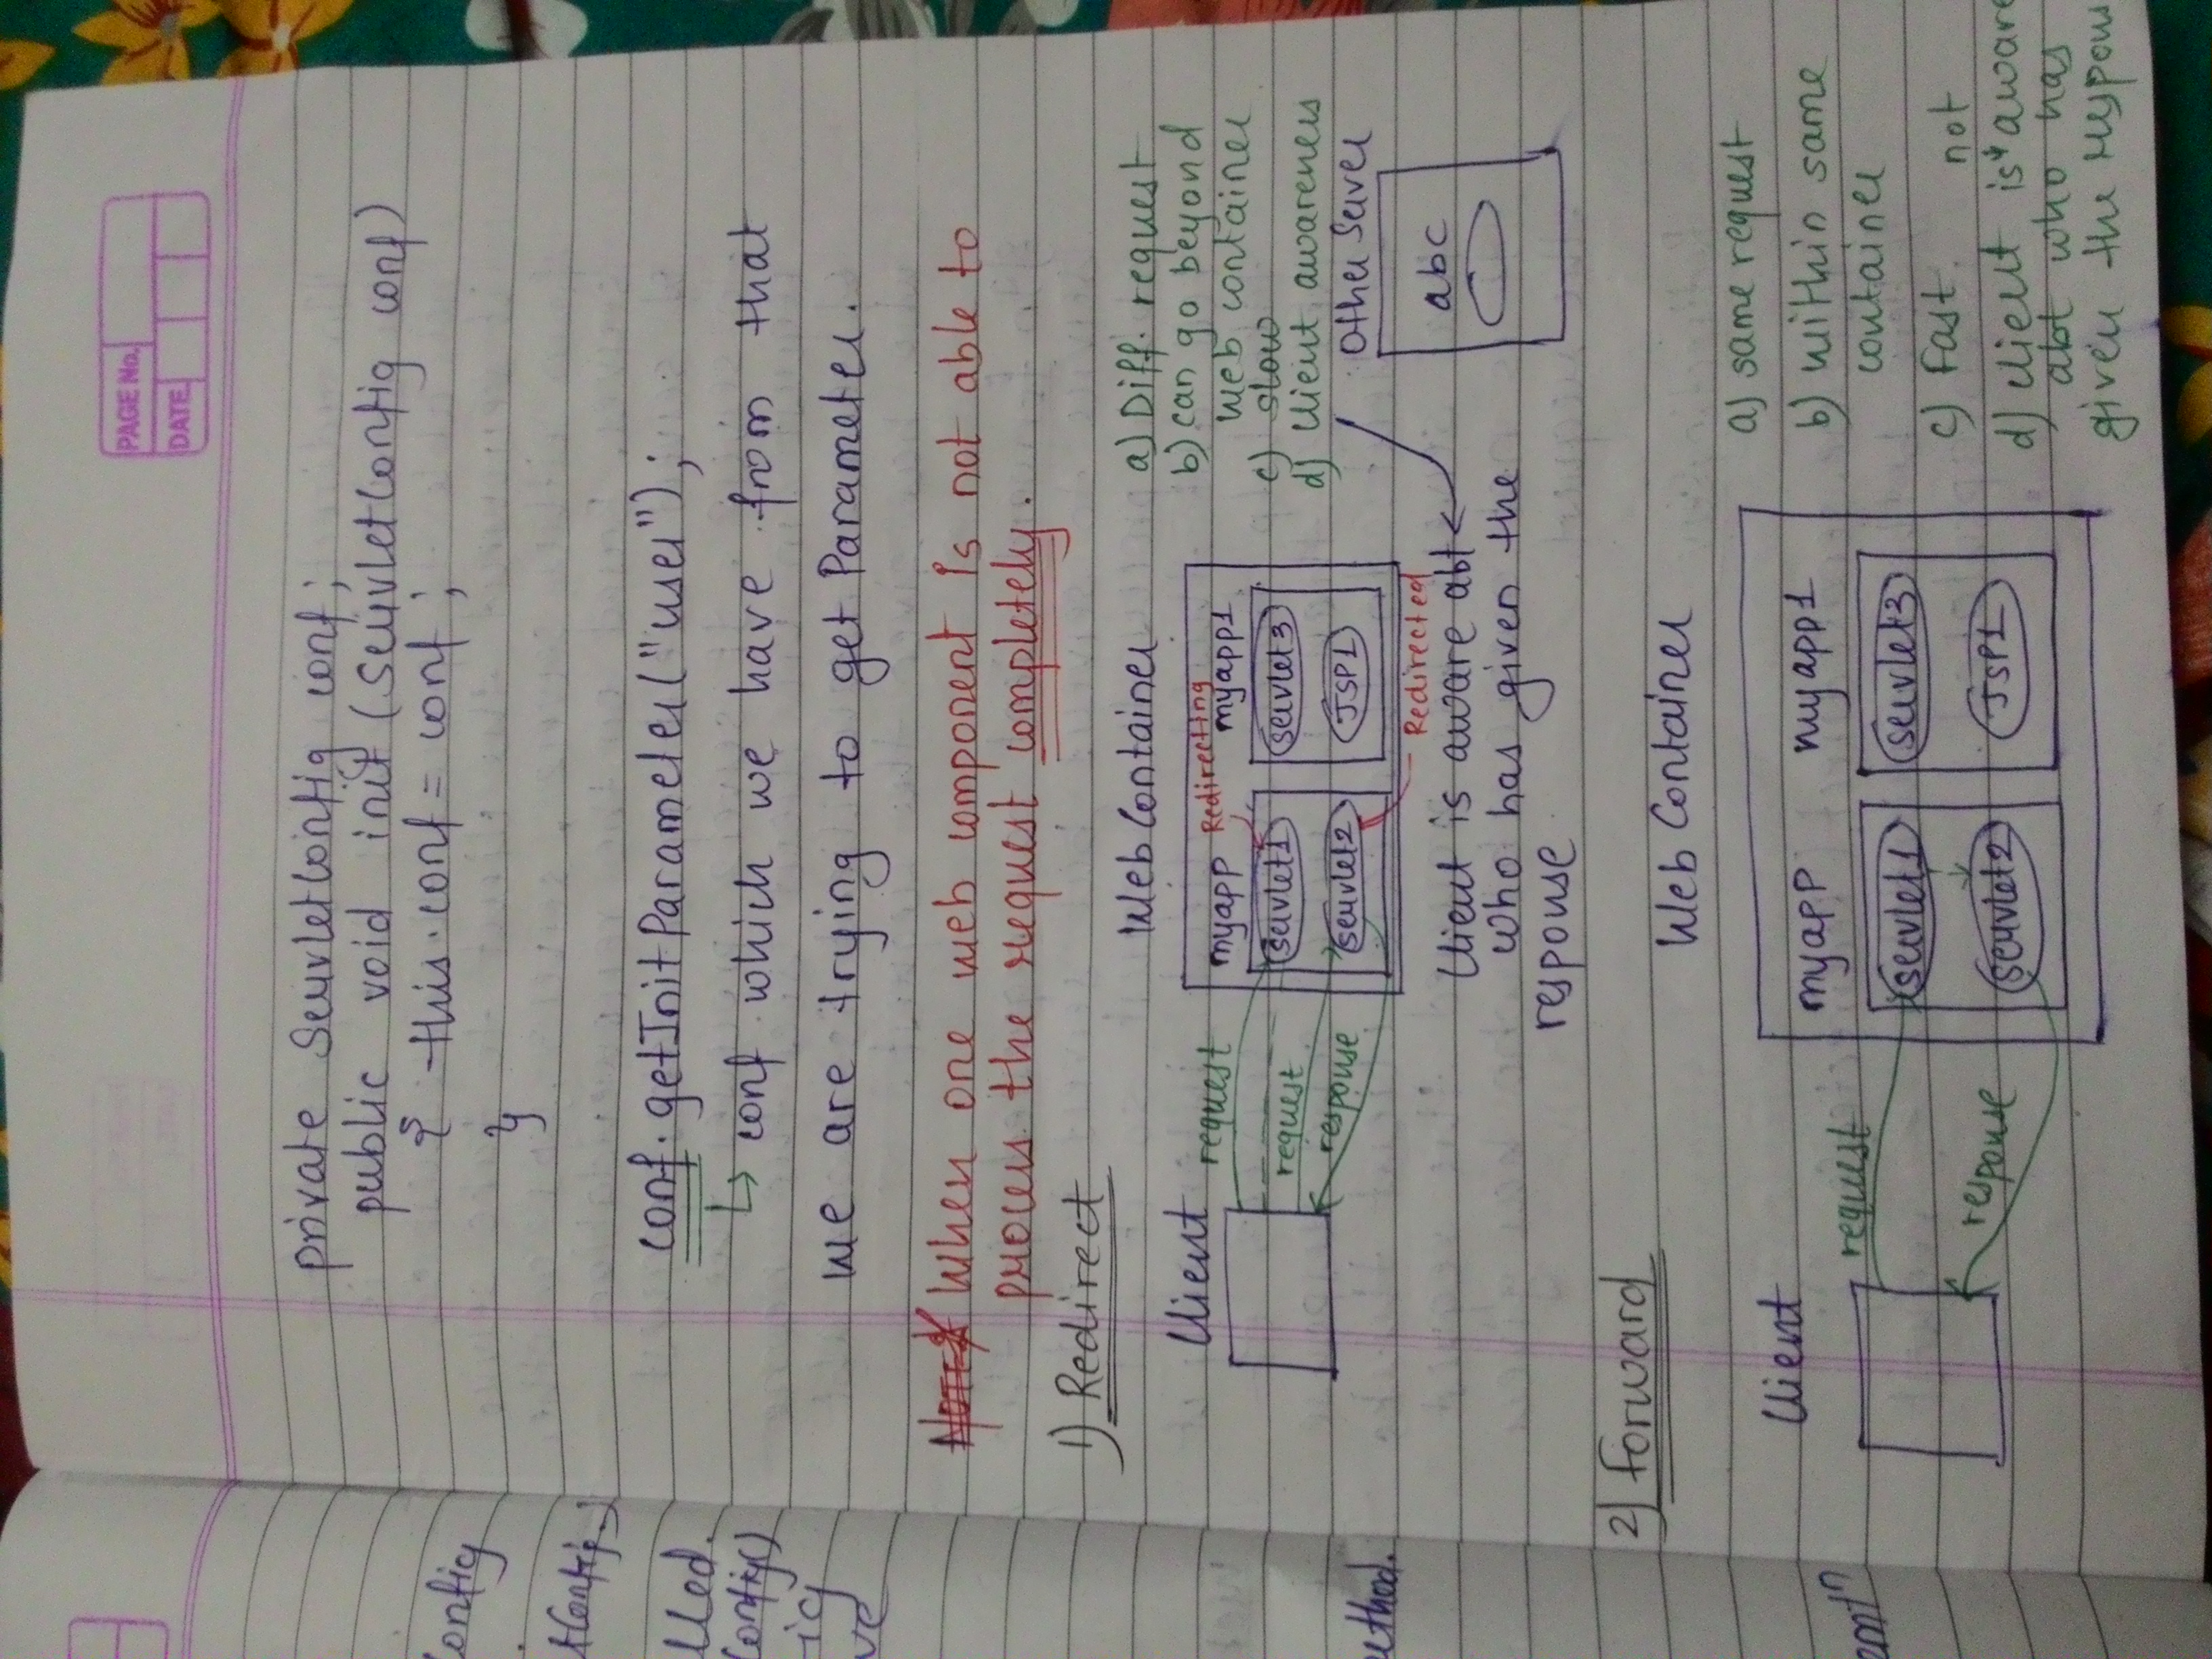 PAGE No.
DATE
private ServletConfig conf;
public void init (ServletConfig conf)
{ this.conf = conf;
}
conf.getInitParameter("user");
↳ conf which we have from that
we are trying to get Parameter.
NOTE * When one web component is not able to
process the request completely.
1) Redirect
Web Container
Client
request
request
response
myapp
Redirecting
myapp1
servlet1
servlet3
servlet2
JSP1
Redirected
a) Diff. request
b) can go beyond
web container
c) slow
d) client awareness
Other Server
abc
Client is aware abt
who has given the
response
2) Forward
Web Container
Client
request
response
myapp
myapp1
servlet1
servlet3
servlet2
JSP1
a) same request
b) within same
container
c) Fast.
not
d) client is aware
abt who has
given the respons
onfig
tConfig
lled.
Config()
ig
ve
ethod.